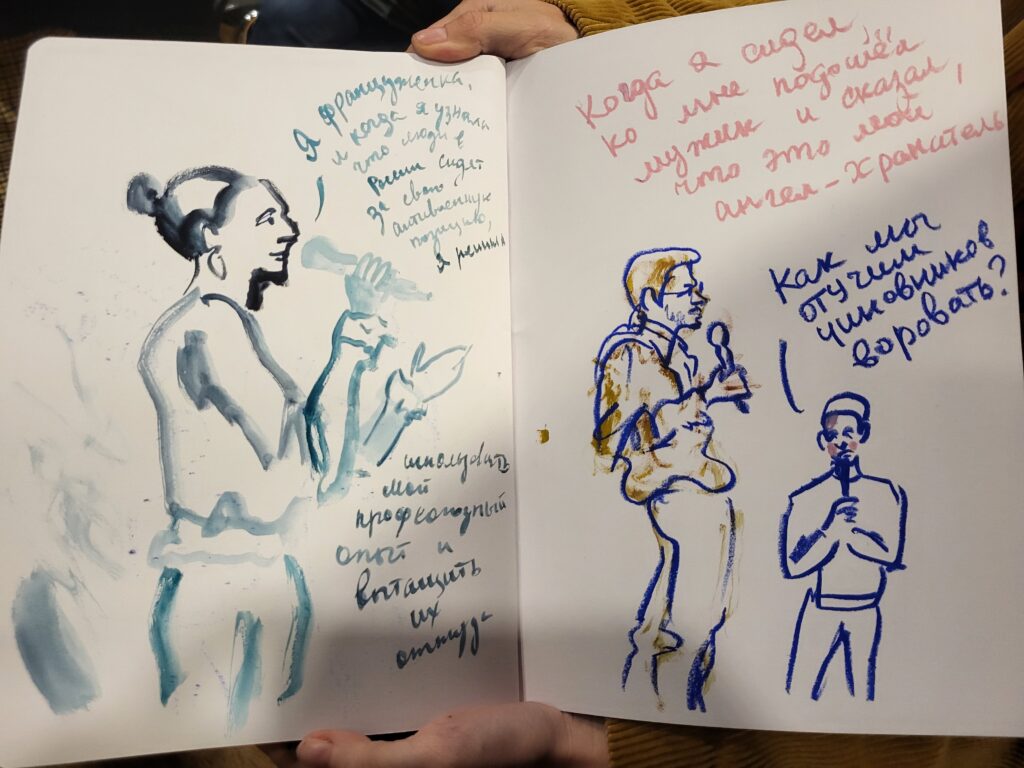 Я француженка,
и когда я узнала
что люди в
России сидят
за свою
антивоенную
позицию,
я решила
использовать
мой
профсоюзный
опыт и
вытащить
их
оттуда
Когда я сидел,
ко мне подошёл
мужик и сказал,
что это мой
ангел-хранитель
Как мы
отучим
чиновников
воровать?